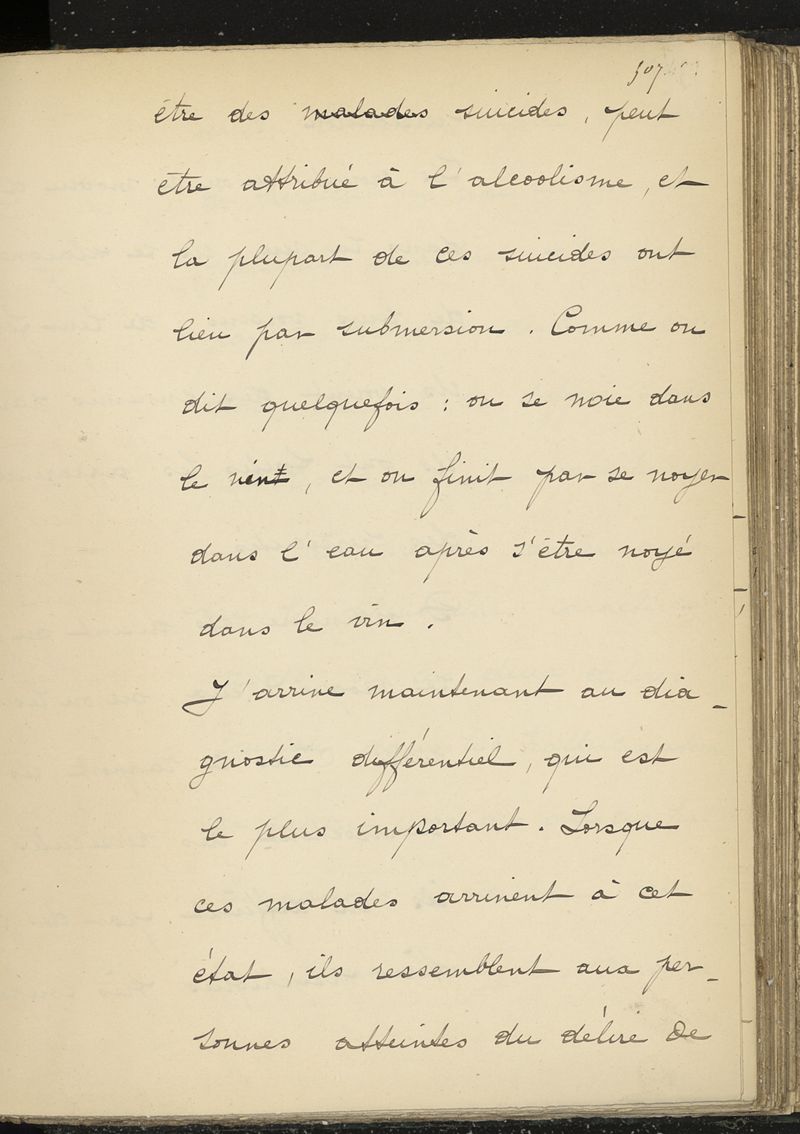 507
être des malades suicides, peut
être attribué à l'alcoolisme, et
la plupart de ces suicides ont
lieu par submersion. Comme on
dit quelquefois : on se noie dans
le vin, et on finit par se noyer
dans l'eau après s'être noyé
dans le vin.
J'arrive maintenant au dia-
gnostic différentiel, qui est
le plus important. Lorsque
ces malades arrivent à cet
état, ils ressemblent aux per-
sonnes atteintes du délire de